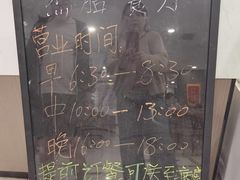 营业时间
早 6:30—8:30
中 10:00—13:00
晚 16:00—18:00
提前订餐可